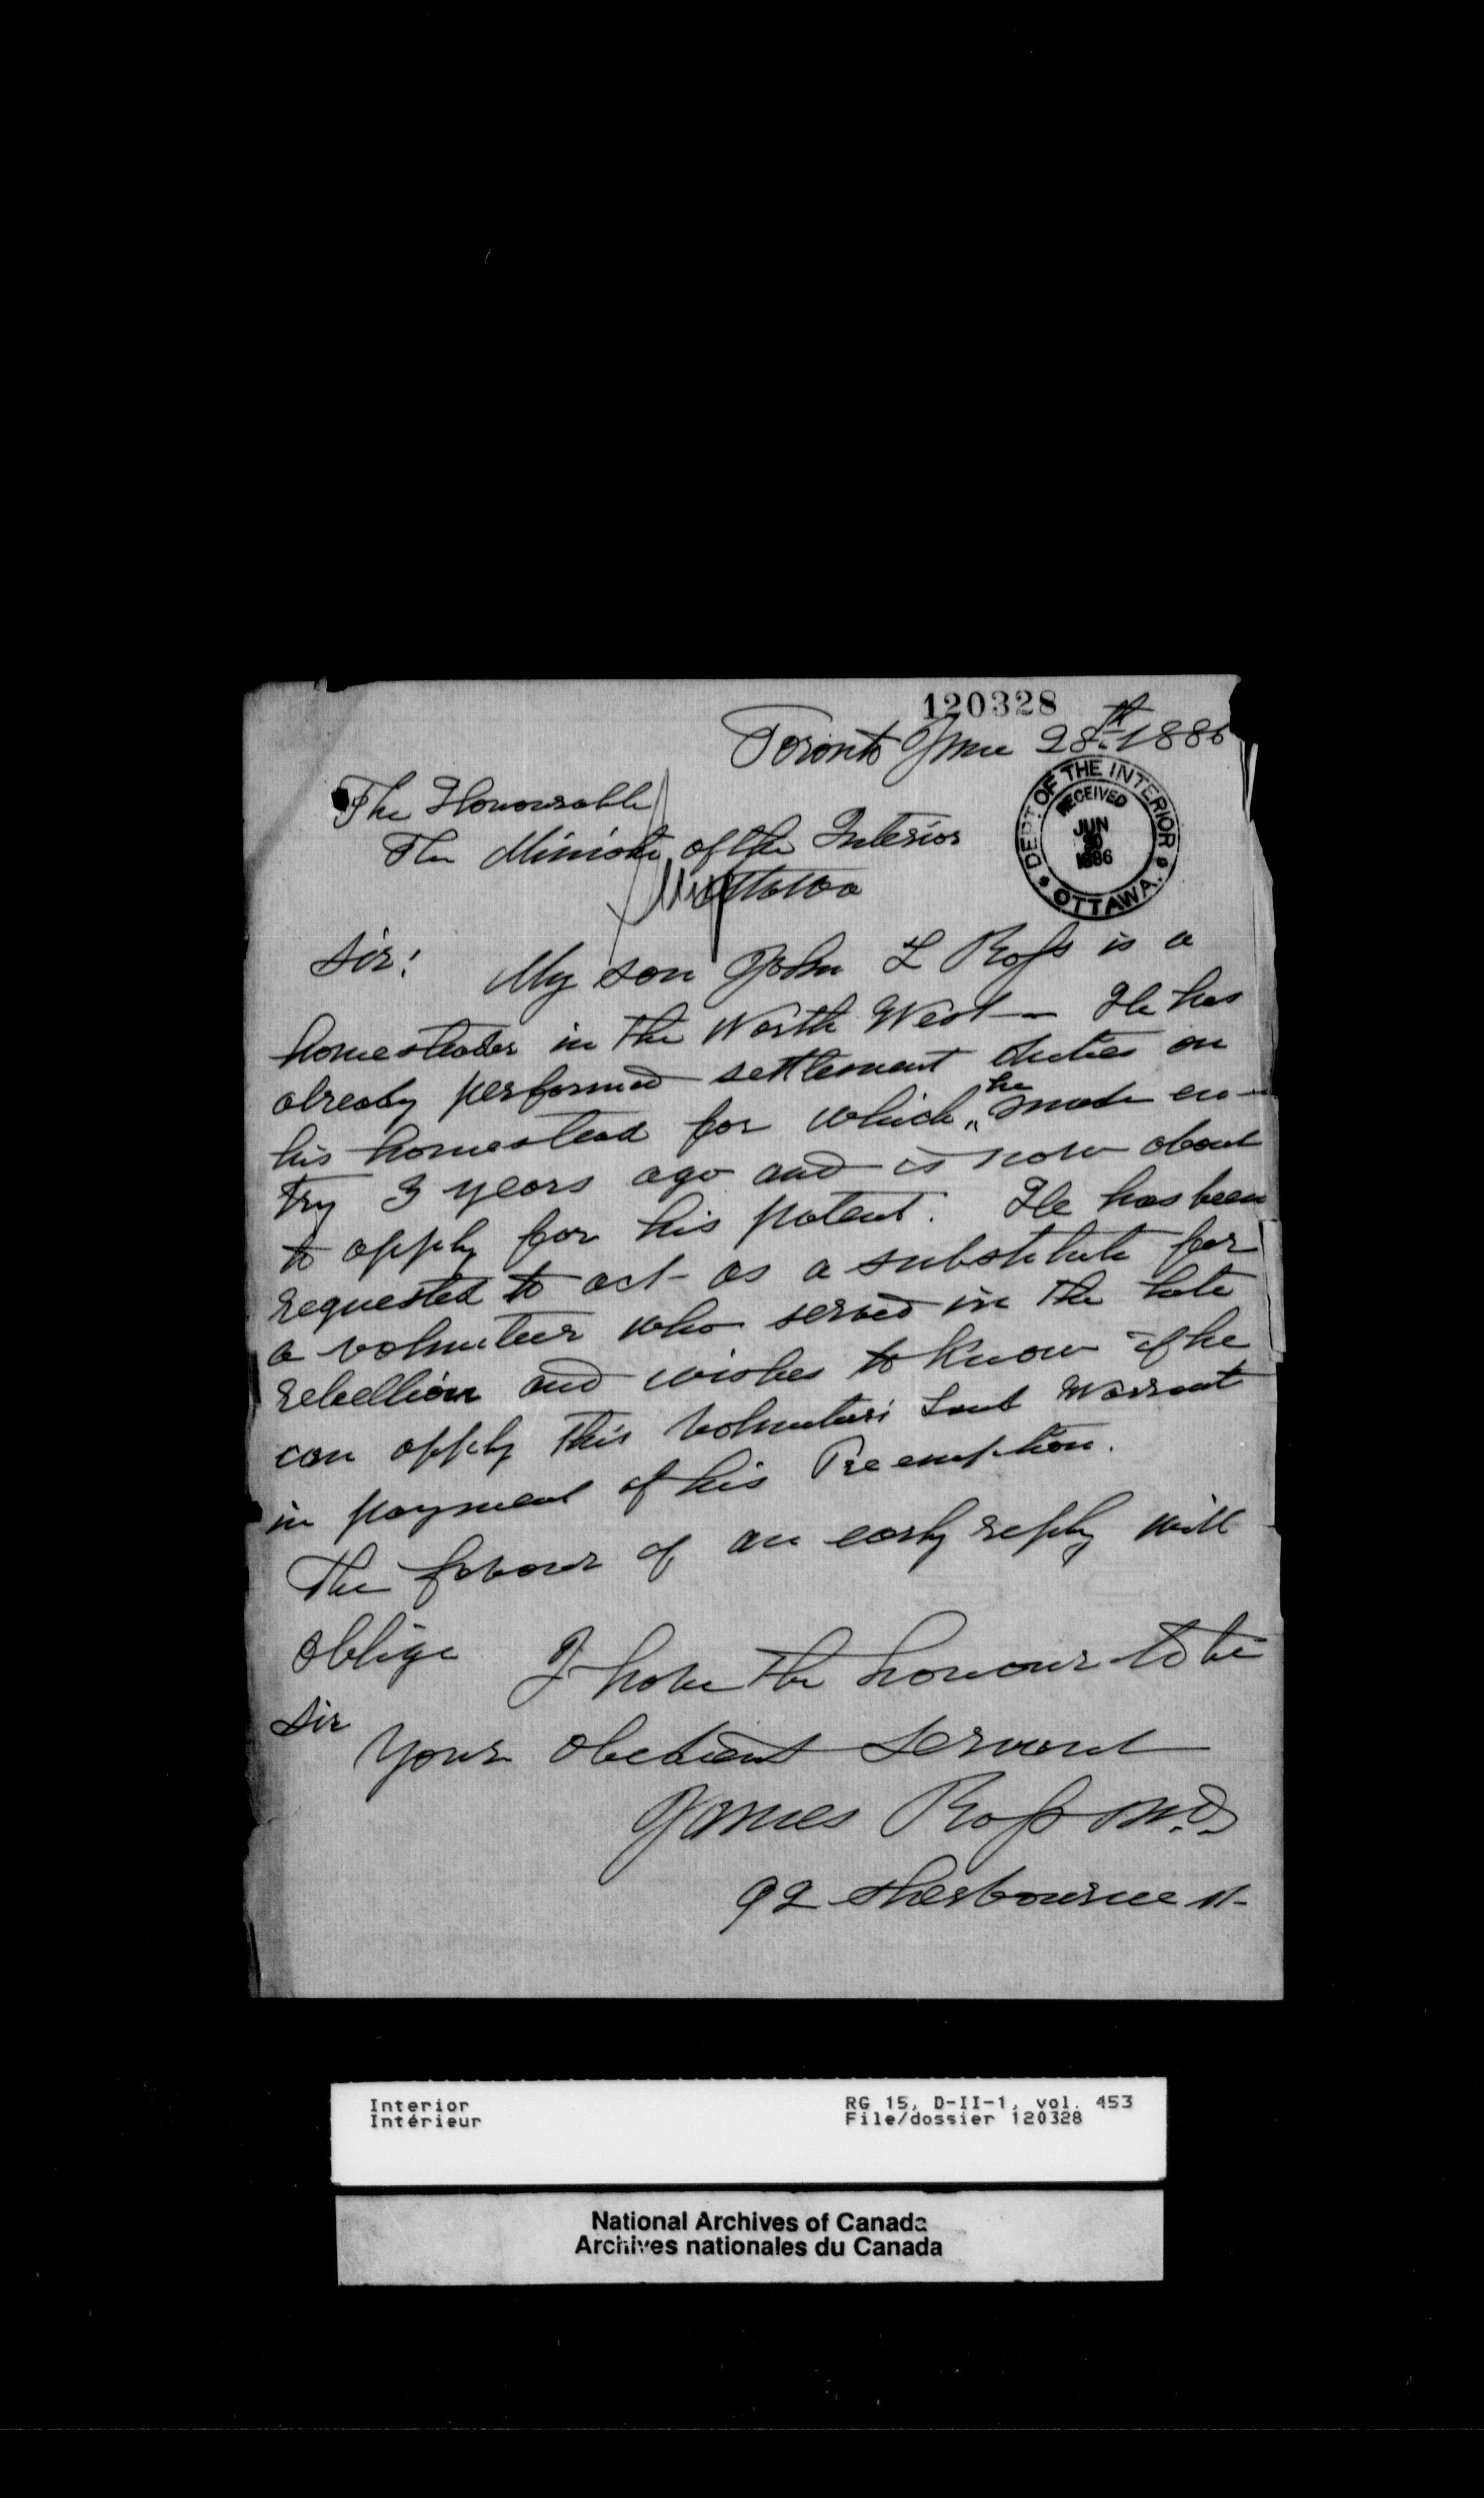 120328
Toronto June 28th 1886
The Honourable
The Minister of the Interior
Ottawa
DEPT OF THE INTERIOR
RECEIVED
JUN
30
1886
OTTAWA.
Sir! My son John L Ross is a
homesteader in the North West - He has
already performed settlement duties on
his homestead for which he made en-
try 3 years ago and is now about
to apply for his patent. He has been
requested to act as a substitute for
a volunteer who served in the late
rebellion and wishes to know if he
can apply this Volunteers' Land Warrant
in payment of his Preemption.
The favour of an early reply will
oblige I have the honour to be
Sir
Your obedient servant
James Ross M.D.
92 Sherbourne st-
Interior RG 15, D-II-1, vol. 453
Intérieur File/dossier 120328
National Archives of Canada
Archives nationales du Canada